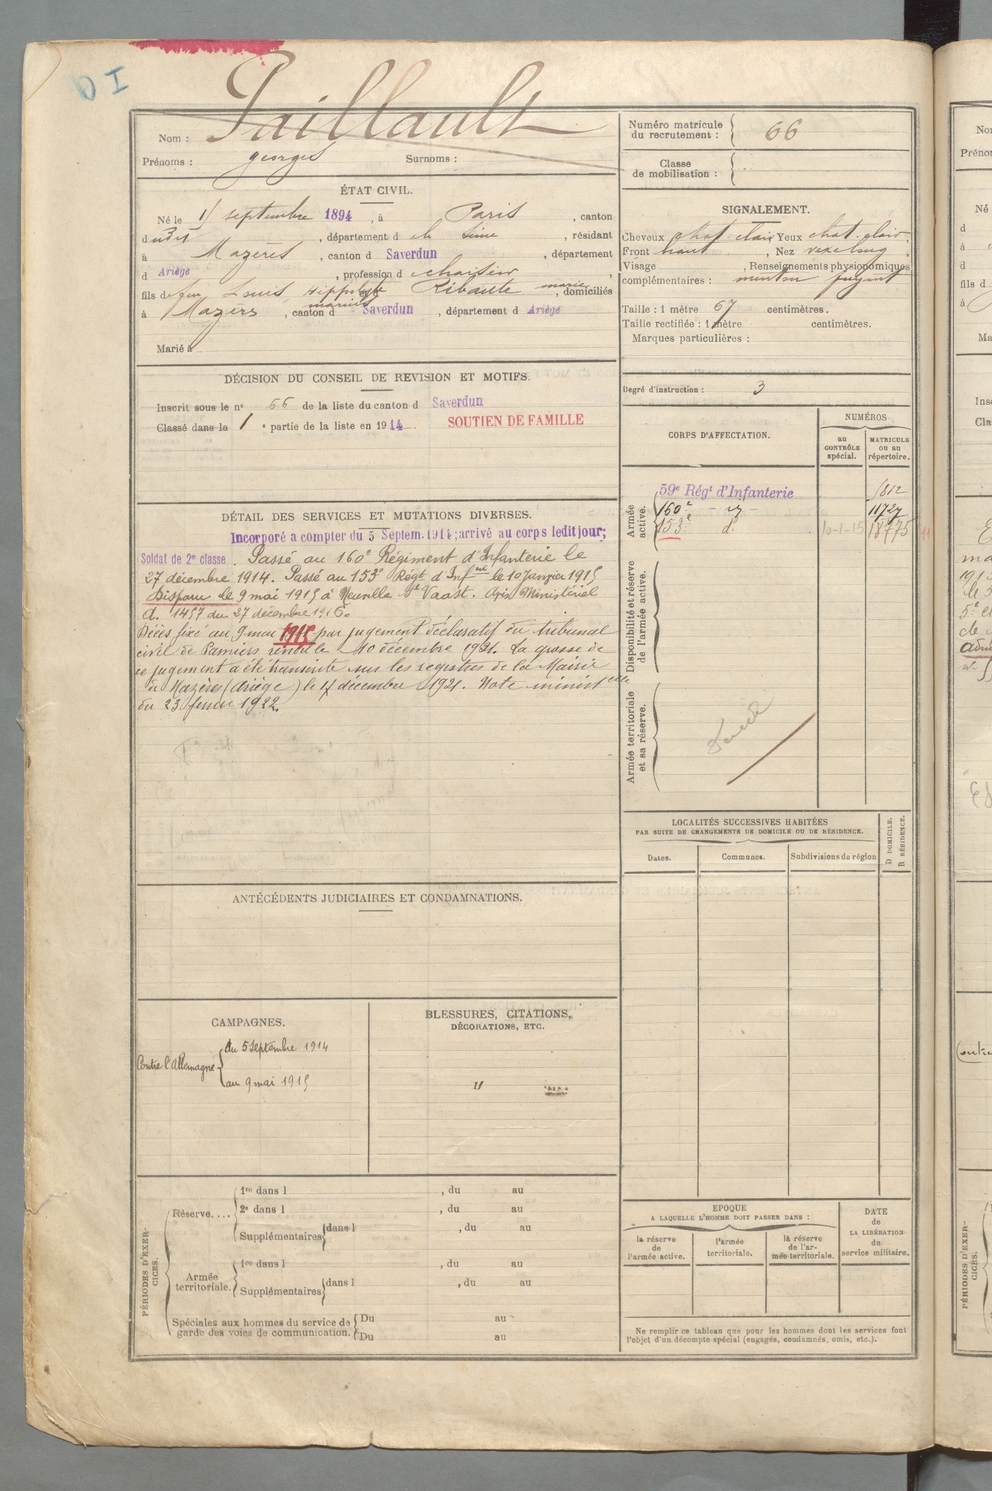 Paillault
Nom :
Prénoms : georges Surnoms :
Numéro matricule
du recrutement : 66
Classe
de mobilisation :
ÉTAT CIVIL.
Né le 1 septembre 1894, à Paris, canton
d, département d la Seine, résidant
à Mazères, canton d Saverdun, département
d Ariège, profession d
fils de feu Louis hippolyte Ribaute marie, domiciliés
à Mazères, canton d Saverdun, département d Ariège
Marié à
SIGNALEMENT.
Cheveux chat. clair Yeux chat. clair
Front haut, Nez
Visage, Renseignements physionomiques
complémentaires : menton fuyant
Taille : 1 mètre 67 centimètres.
Taille rectifiée : 1 mètre centimètres.
Marques particulières :
Degré d'instruction : 3
DÉCISION DU CONSEIL DE REVISION ET MOTIFS.
Inscrit sous le n° 66 de la liste du canton d Saverdun
Classé dans la 1e partie de la liste en 1914
SOUTIEN DE FAMILLE
DÉTAIL DES SERVICES ET MUTATIONS DIVERSES.
Incorporé a compter du 5 Septem. 1914; arrivé au corps ledit jour;
Soldat de 2e classe. Passé au 160e Régiment d'Infanterie le
27 décembre 1914. Passé au 153e Régt d'Infrie le 10 Janvier 1915
Disparu le 9 mai 1915 à Neuville St Vaast. Avis Ministériel
d. 1457 du 27 décembre 1916.
Décès fixé au 9 mai 1915 par jugement déclaratif du tribunal
civil de Pamiers rendu le 10 décembre 1921. La grosse de
ce jugement a été transcrite sur les registres de la Mairie
de Mazères (Ariège) le 17 décembre 1921. Note ministelle
du 23 février 1922.
CORPS D'AFFECTATION.
NUMÉROS
au
CONTRÔLE
spécial.
MATRICULE
ou au
répertoire.
Armée
active.
59e Régt d'Infanterie
160e 11727
153e d° 10-1-15 18775
Disponibilité et réserve
de l'armée active.
Armée territoriale
et sa réserve.
LOCALITÉS SUCCESSIVES HABITÉES
PAR SUITE DE CHANGEMENTS DE DOMICILE OU DE RÉSIDENCE.
Dates. Communes. Subdivisions de région
D DOMICILE.
R RÉSIDENCE.
ANTÉCÉDENTS JUDICIAIRES ET CONDAMNATIONS.
CAMPAGNES.
Contre l'Allemagne
du 5 Septembre 1914
au 9 mai 1915
BLESSURES, CITATIONS,
DÉCORATIONS, ETC.
"
PÉRIODES D'EXER-
CICES.
Réserve....
1re dans l , du au
2e dans l , du au
Supplémentaires dans l , du au
Armée
territoriale.
1re dans l , du au
Supplémentaires dans l , du au
Spéciales aux hommes du service de
garde des voies de communication.
Du au
Du au
EPOQUE
A LAQUELLE L'HOMME DOIT PASSER DANS :
la réserve
de
l'armée active.
l'armée
territoriale.
la réserve
de l'ar-
mée territoriale.
DATE
de
LA LIBÉRATION
du
service militaire.
Ne remplir ce tableau que pour les hommes dont les services font
l'objet d'un décompte spécial (engagés, condamnés, omis, etc.).